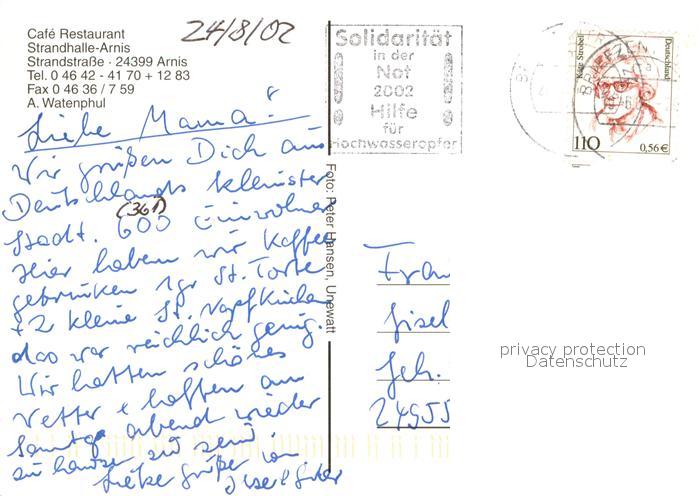 Café Restaurant
Strandhalle-Arnis
Strandstraße · 24399 Arnis
Tel. 0 46 42 - 41 70 + 12 83
Fax 0 46 36 / 7 59
A. Watenphul
24/8/02
Liebe Mama!
Wir grüßen Dich aus
Deutschlands kleinster
(361)
Stadt. 600 Einwohner
Hier haben wir Kaffee
getrunken 1 gr St. Torte
+ 2 kleine St. Napfkuchen
das war reichlich genug.
Wir hatten schönes
Wetter + hoffen am
Samtg abend wieder
zu hause zu sein
Liebe Grüße von
Foto: Peter Hansen, Unewatt
Solidarität
in der
Not
2002
Hilfe
für
Hochwasseropfer
BRIEFZEN
Käte Strobel
Deutschland
110
0,56€
Frau
Gisel
Geh.
24955
privacy protection
Datenschutz